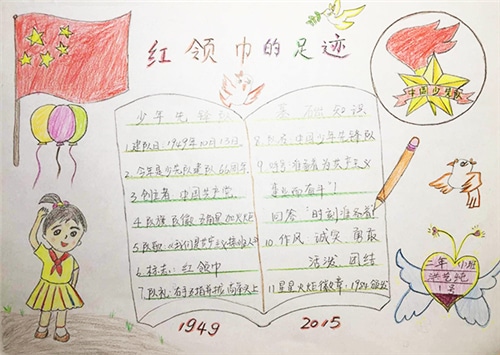 红领巾的足迹
中国少先队
少年先锋队
1.建队日:1949年10月13日
2.今年是少先队建队66周年
3.创立者:中国共产党
4.队旗 队徽:五角星加火炬
5.队歌:《我们是共产主义接班人》
6.标志:红领巾
7.队礼:右手五指并拢 高举头上
基础知识
8.队名:中国少年先锋队
9.呼号:准备着为共产主义
事业而奋斗!
回答"时刻准备着!"
10.作风 诚实 勇敢
活泼 团结
11.星星火炬徽章:
1949 2015
二年 班
1号